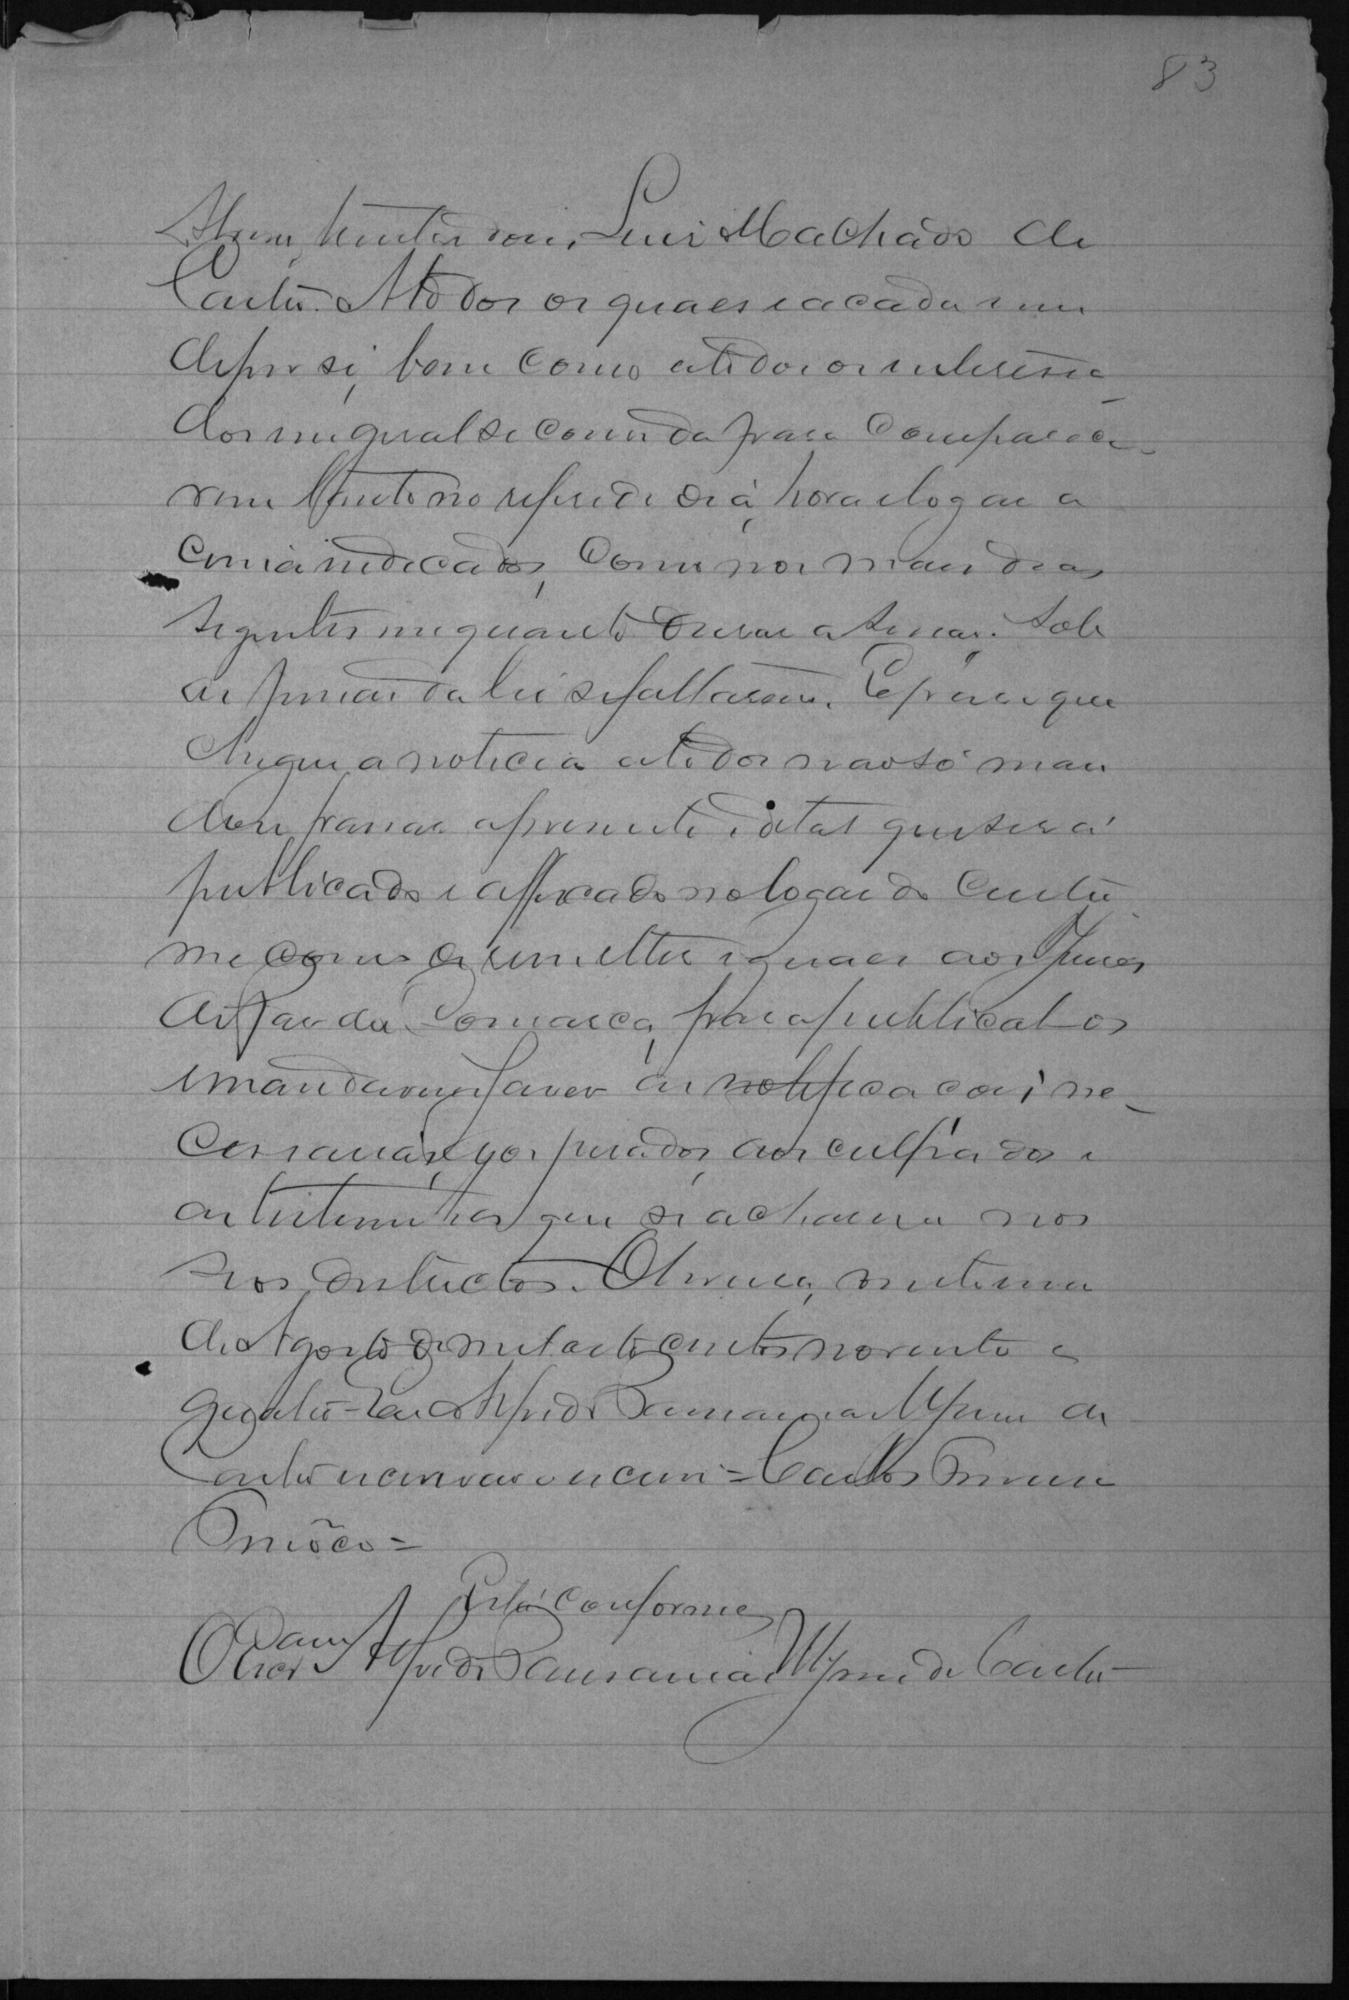 83
Luis Machado de
Castro. A todos os quaes e a cada um
de per si, bem como a todos os interessa
dos em geral se convida para comparece
rem tanto no referido dia, hora e logar a
cima indicados, como nos mais dias
seguintes em quanto durar a sessão. Sob
as penas da lei se faltarem. E para que
chegue a noticia a todos não só man
dou passar a presente edital que será
publicado e affixado no logar do custu
me como e remetter iguaes aos Juises
de Paz da Comarca, para publical-os
e mandarem faser as notificacoes ne-
cessarias, aos jurados, aos culpados e
as testemunhas que se acharem nos
seos districtos. vinte um
de Agosto de mil oito centos noventa e
quatro - Eu Alfredo de
Castro escrivão escrevi = Carlos
=
Está conforme
O Escrivam Alfredo de Castro